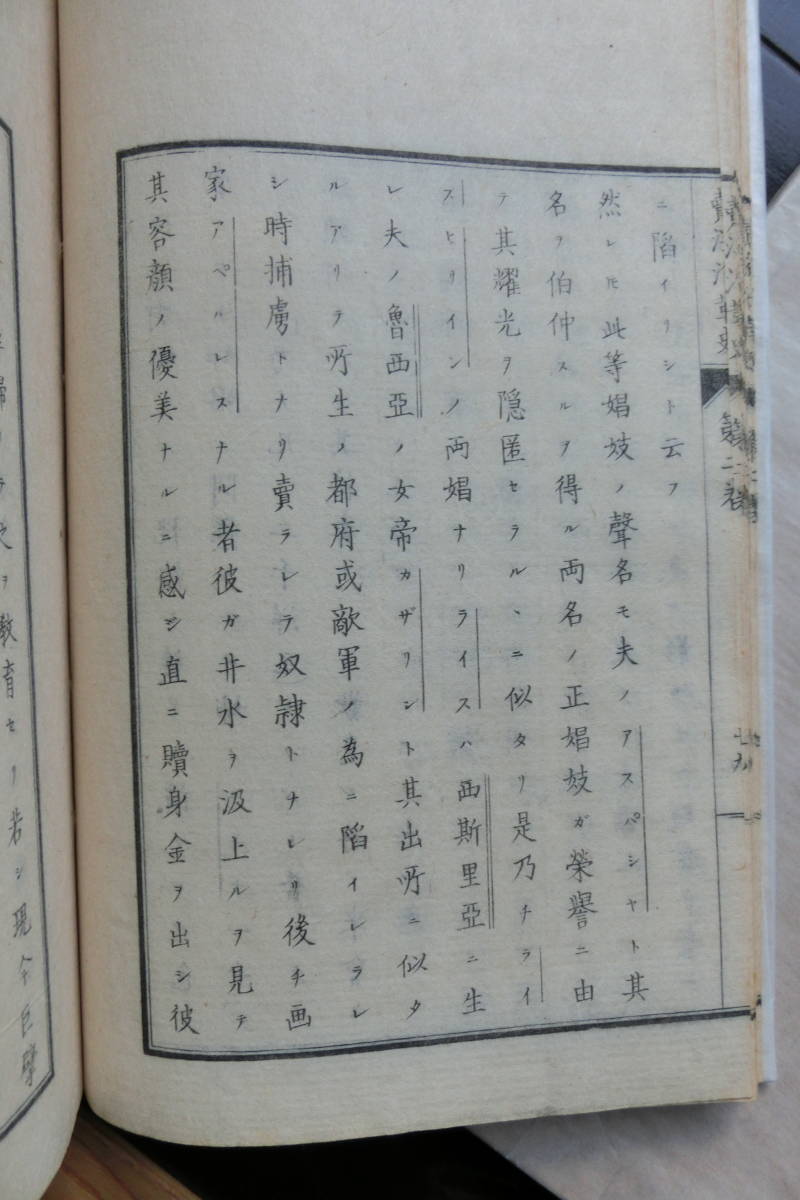 賣淫沿革史
第二卷
七九
ニ陷イリシト云フ
然レ𪜈此等娼妓ノ聲名モ夫ノアスパシヤト其
名ヲ伯仲スルヲ得ル両名ノ正娼妓ガ榮譽ニ由
テ其耀光ヲ隠匿セラルヽニ似タリ是乃チライ
スヒリインノ両娼ナリライスハ西斯里亞ニ生
レ夫ノ魯西亞ノ女帝カザリントト其出所ニ似タ
ルアリテ所生ノ都府或敵軍ノ為ニ陷イレラレ
シ時捕虜トナリ賣ラレテ奴隷トナレリ後チ画
家アペルレスナル者彼ガ井水ヲ汲上ルヲ見テ
其容顏ノ優美ナルニ感ジ直ニ贖身金ヲ出シ彼
ヲ教育セリ若シ現今巨擘